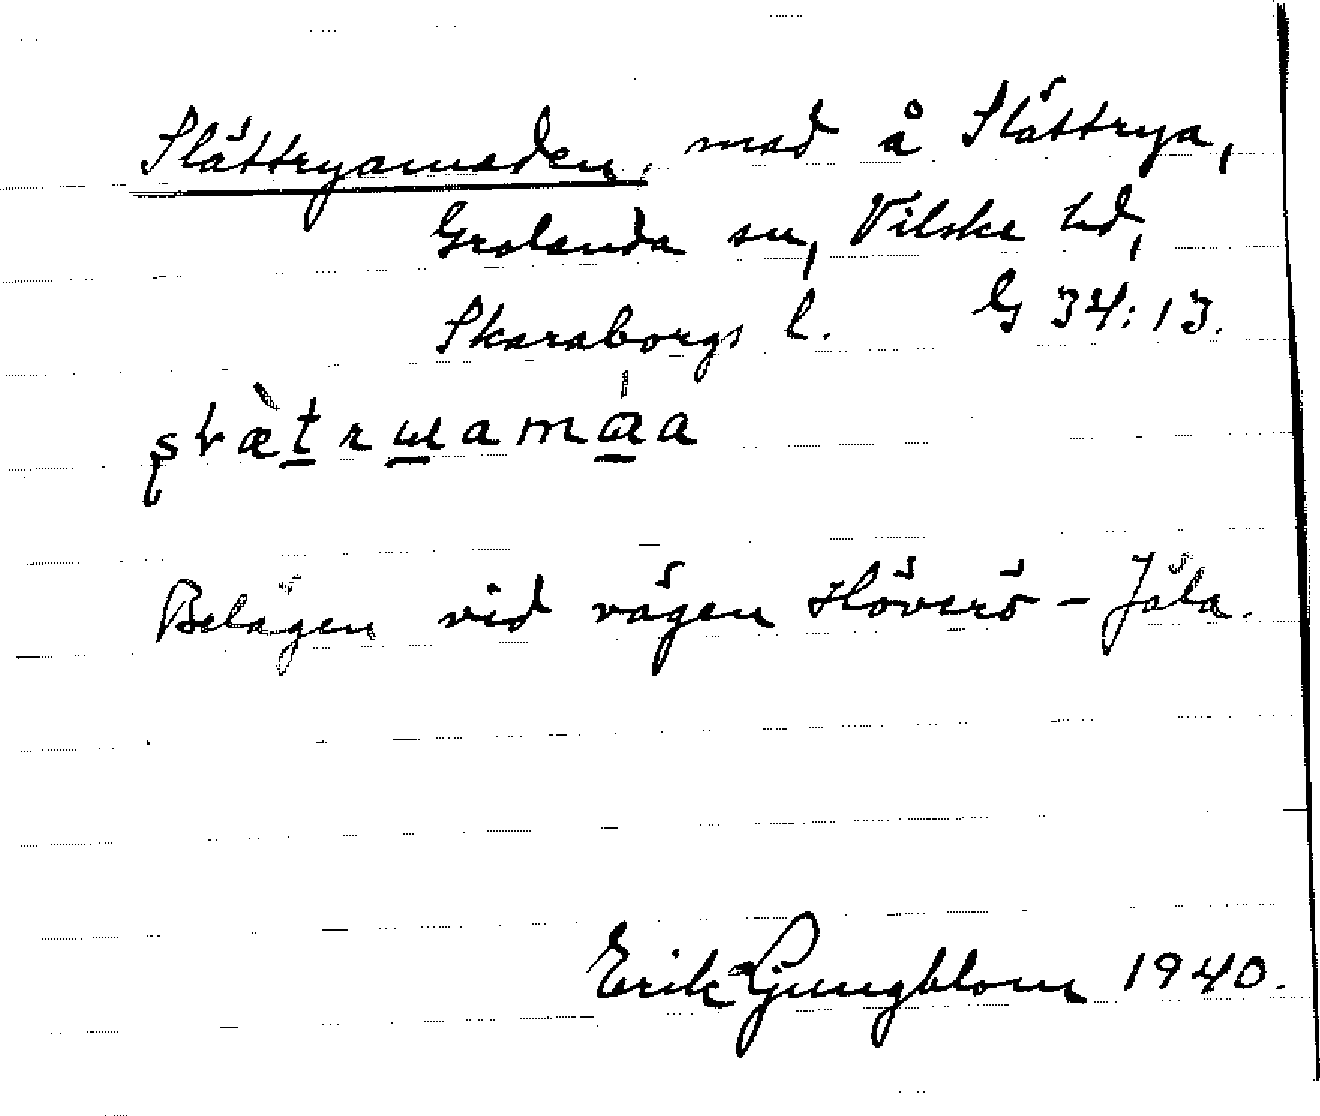 Slättryamaden, mad å Slättrya,
Grolanda sn, Vilske hd,
Skaraborgs l. G 34:13.
Belägen vid vägen Höverö - Jäla.
Erik Ljungblom 1940.